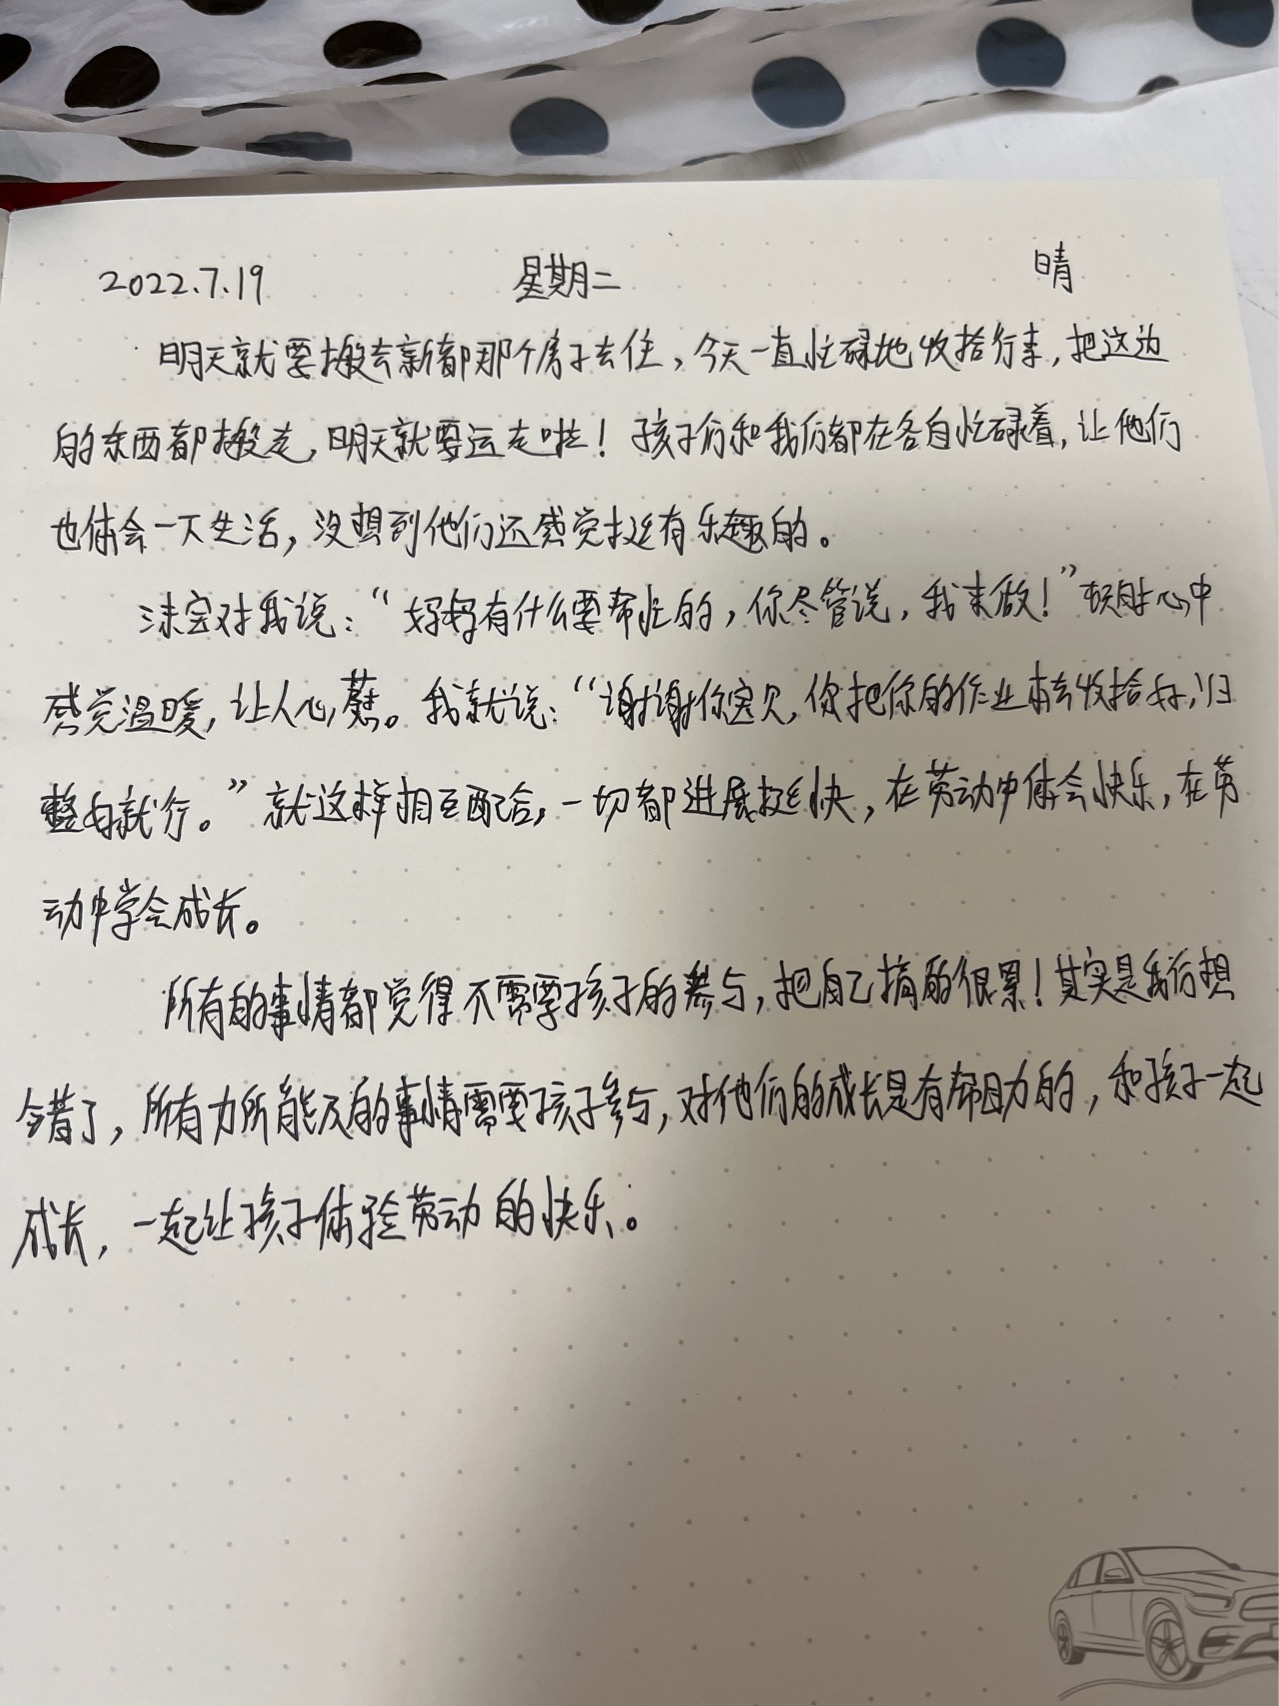 2022.7.19 星期二 晴
明天就要搬去新都那个房子去住，今天一直忙碌地收拾行李，把这边
的东西都搬走，明天就要运走啦！孩子们和我们都在各自忙碌着，让他们
也体会一下生活，没想到他们还感觉挺有乐趣的。
沫宝对我说：“妈妈有什么要帮忙的，你尽管说，我来做！”顿时心中
感觉温暖，让人心。我就说：“谢谢你宝贝，你把你的作业本去收拾好，归
整好就行。”就这样相互配合，一切都进展挺快，在劳动中体会快乐，在劳
动中学会成长。
所有的事情都觉得不需要孩子的参与，把自己搞的很累！其实是我们想
错了，所有力所能及的事情需要孩子参与，对他们的成长是有帮助的，和孩子一起
成长，一起让孩子体验劳动的快乐。